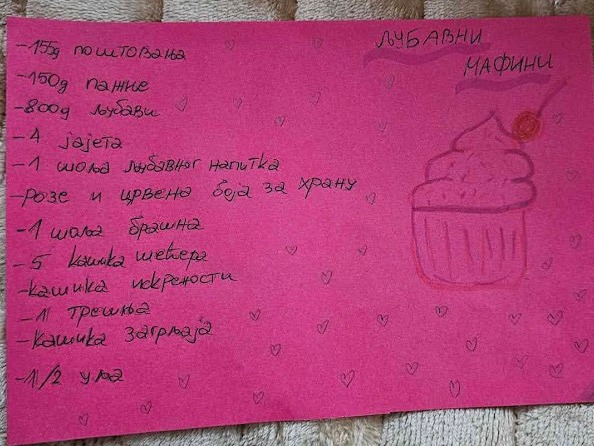 ЉУБАВНИ
МАФИНИ
-155g поштовања
-150g пажње
-800g љубави
-4 јајета
-1 шоља љубавног напитка
-розе и црвена боја за храну
-1 шоља брашна
-5 кашика шећера
-кашика искрености
-1 трешња
-кашика загрљаја
-1/2 уља